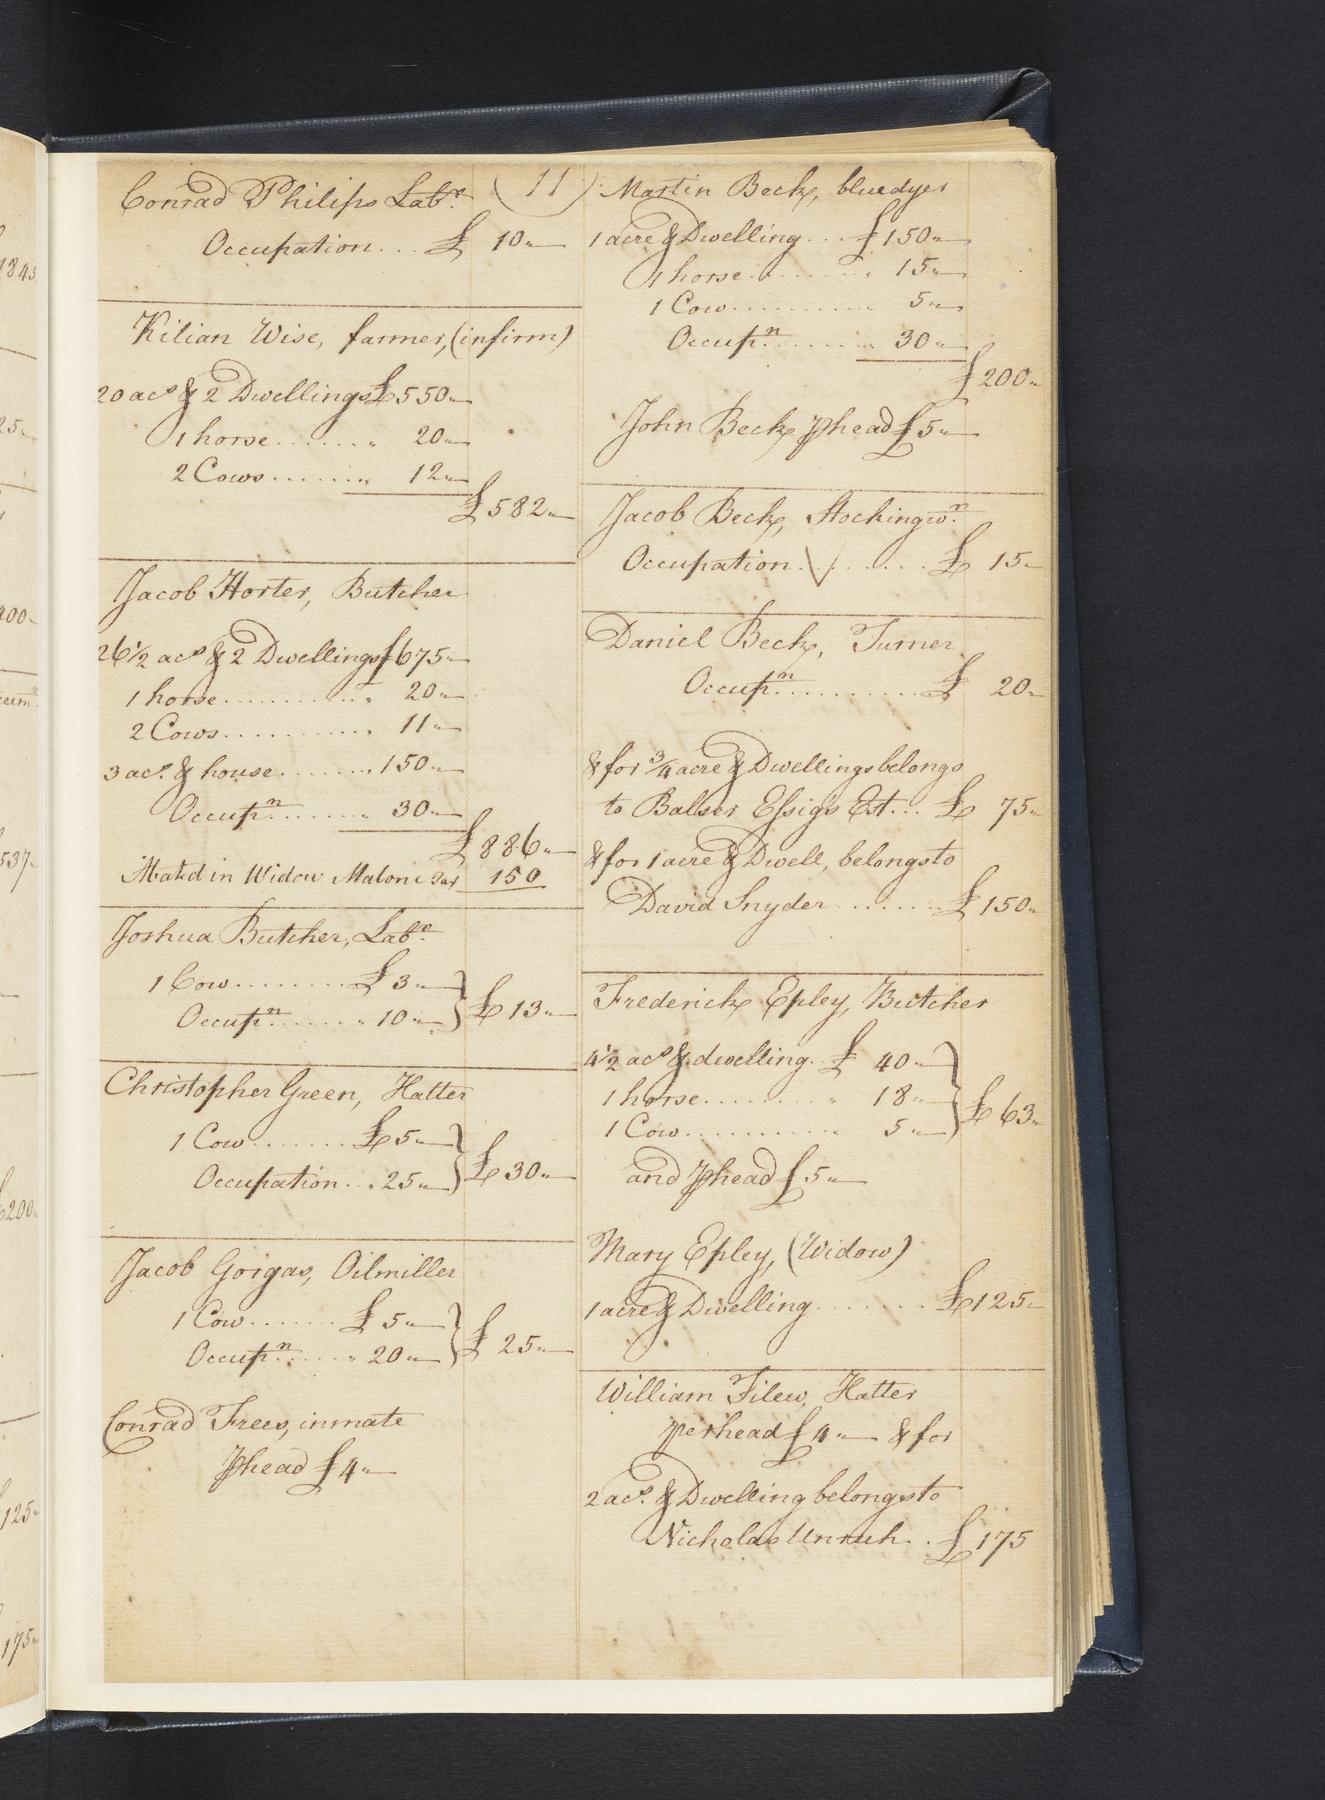 (11)
Conrad Philips Labr.
Occupation.... £ 10"
Kilian Wise, farmer, (infirm)
20 acs & 2 Dwellings £550"
1 horse....... " 20"
2 Cows....... " 12"
£582"
Jacob Horter, Butcher
26 1/2 acs & 2 Dwellings £675"
1 horse............ " 20"
2 Cows............ " 11"
3 acs. & house........ " 150"
Occupn........ " 30"
£886"
Abated in Widow Maloni Tax 150
Joshua Butcher, Labr.
1 Cow......... £ 3"
Occupn....... " 10"
£13"
Christopher Green, Hatter
1 Cow........ £5"
Occupation... " 25"
£30"
Jacob Gorgas, Oilmiller
1 Cow....... £ 5"
Occupn...... " 20"
£ 25"
Conrad Frees, inmate
Phead £4"
Martin Beck, bluedyer
1 acre & Dwelling.... £150"
1 horse.......... " 15"
1 Cow.......... " 5"
Occupn........ " 30"
£200"
John Beck Phead £5"
Jacob Beck, Stockingwn.
Occupation.......... £ 15"
Daniel Beck, Turner
Occupn............ £ 20"
& for 3/4 acre & Dwellings belongs
to Balser Essig's Est... £ 75"
& for 1 acre & Dwell, belongs to
David Snyder........ £150"
Frederick Epley, Butcher
4 1/2 acs & dwelling.. £ 40"
1 horse......... " 18"
1 Cow............ " 5"
£63"
and Phead £5"
Mary Epley, (Widow)
1 acre & Dwelling........ £125"
William Filew, Hatter
perhead £4" & for
2 acs. & Dwelling belongs to
Nicholas Unruh.. £175
1843
25"
400"
537"
£200"
125"
175"